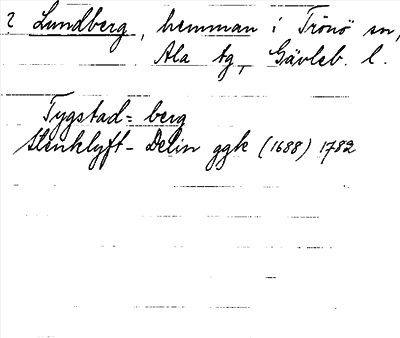 ? Lundberg, hemman i Trönö sn,
Ala tg, Gävleb. l.
Tygstad = berg
Stenklyft - Delin ggk (1688) 1782